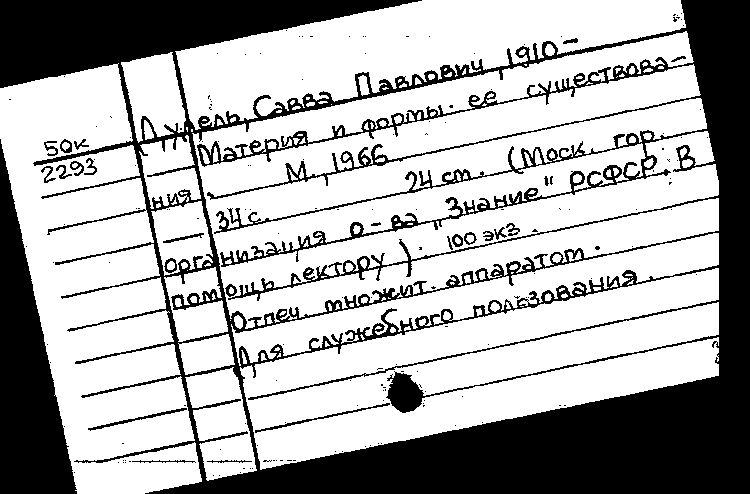 Дудель, Савва Павлович, 1910-
50к
2293
Материя и формы ее существова-
ния. М., 1966
34 с. 24 ст. (Моск. гор.
организация о-ва "Знание" РСФСР. В
помощь лектору). 100 экз.
Отпеч. множит. аппаратом.
Для служебного пользования.